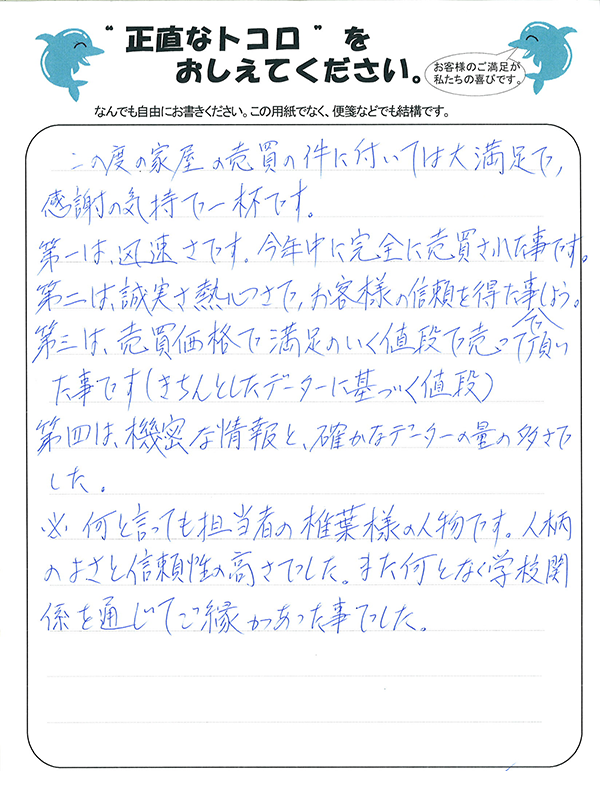 "正直なトコロ"を
おしえてください。
お客様のご満足が
私たちの喜びです。
なんでも自由にお書きください。この用紙でなく、便箋などでも結構です。
この度の家屋の売買の件に付いては大満足で,
感謝の気持で一杯です。
第一は、迅速さです。今年中に完全に売買された事です。
第二は、誠実さ熱心さで、お客様の信頼を得た事でしょう。
第三は、売買価格で満足のいく値段で売って頂い
た事です(きちんとしたデーターに基づく値段)
第四は、機密な情報と、確かなデーターの量の多さで
した。
※ 何と言っても担当者の椎葉様の人物です。人柄
のよさと信頼性の高さでした。また何となく学校関
係を通じてご縁があった事でした。